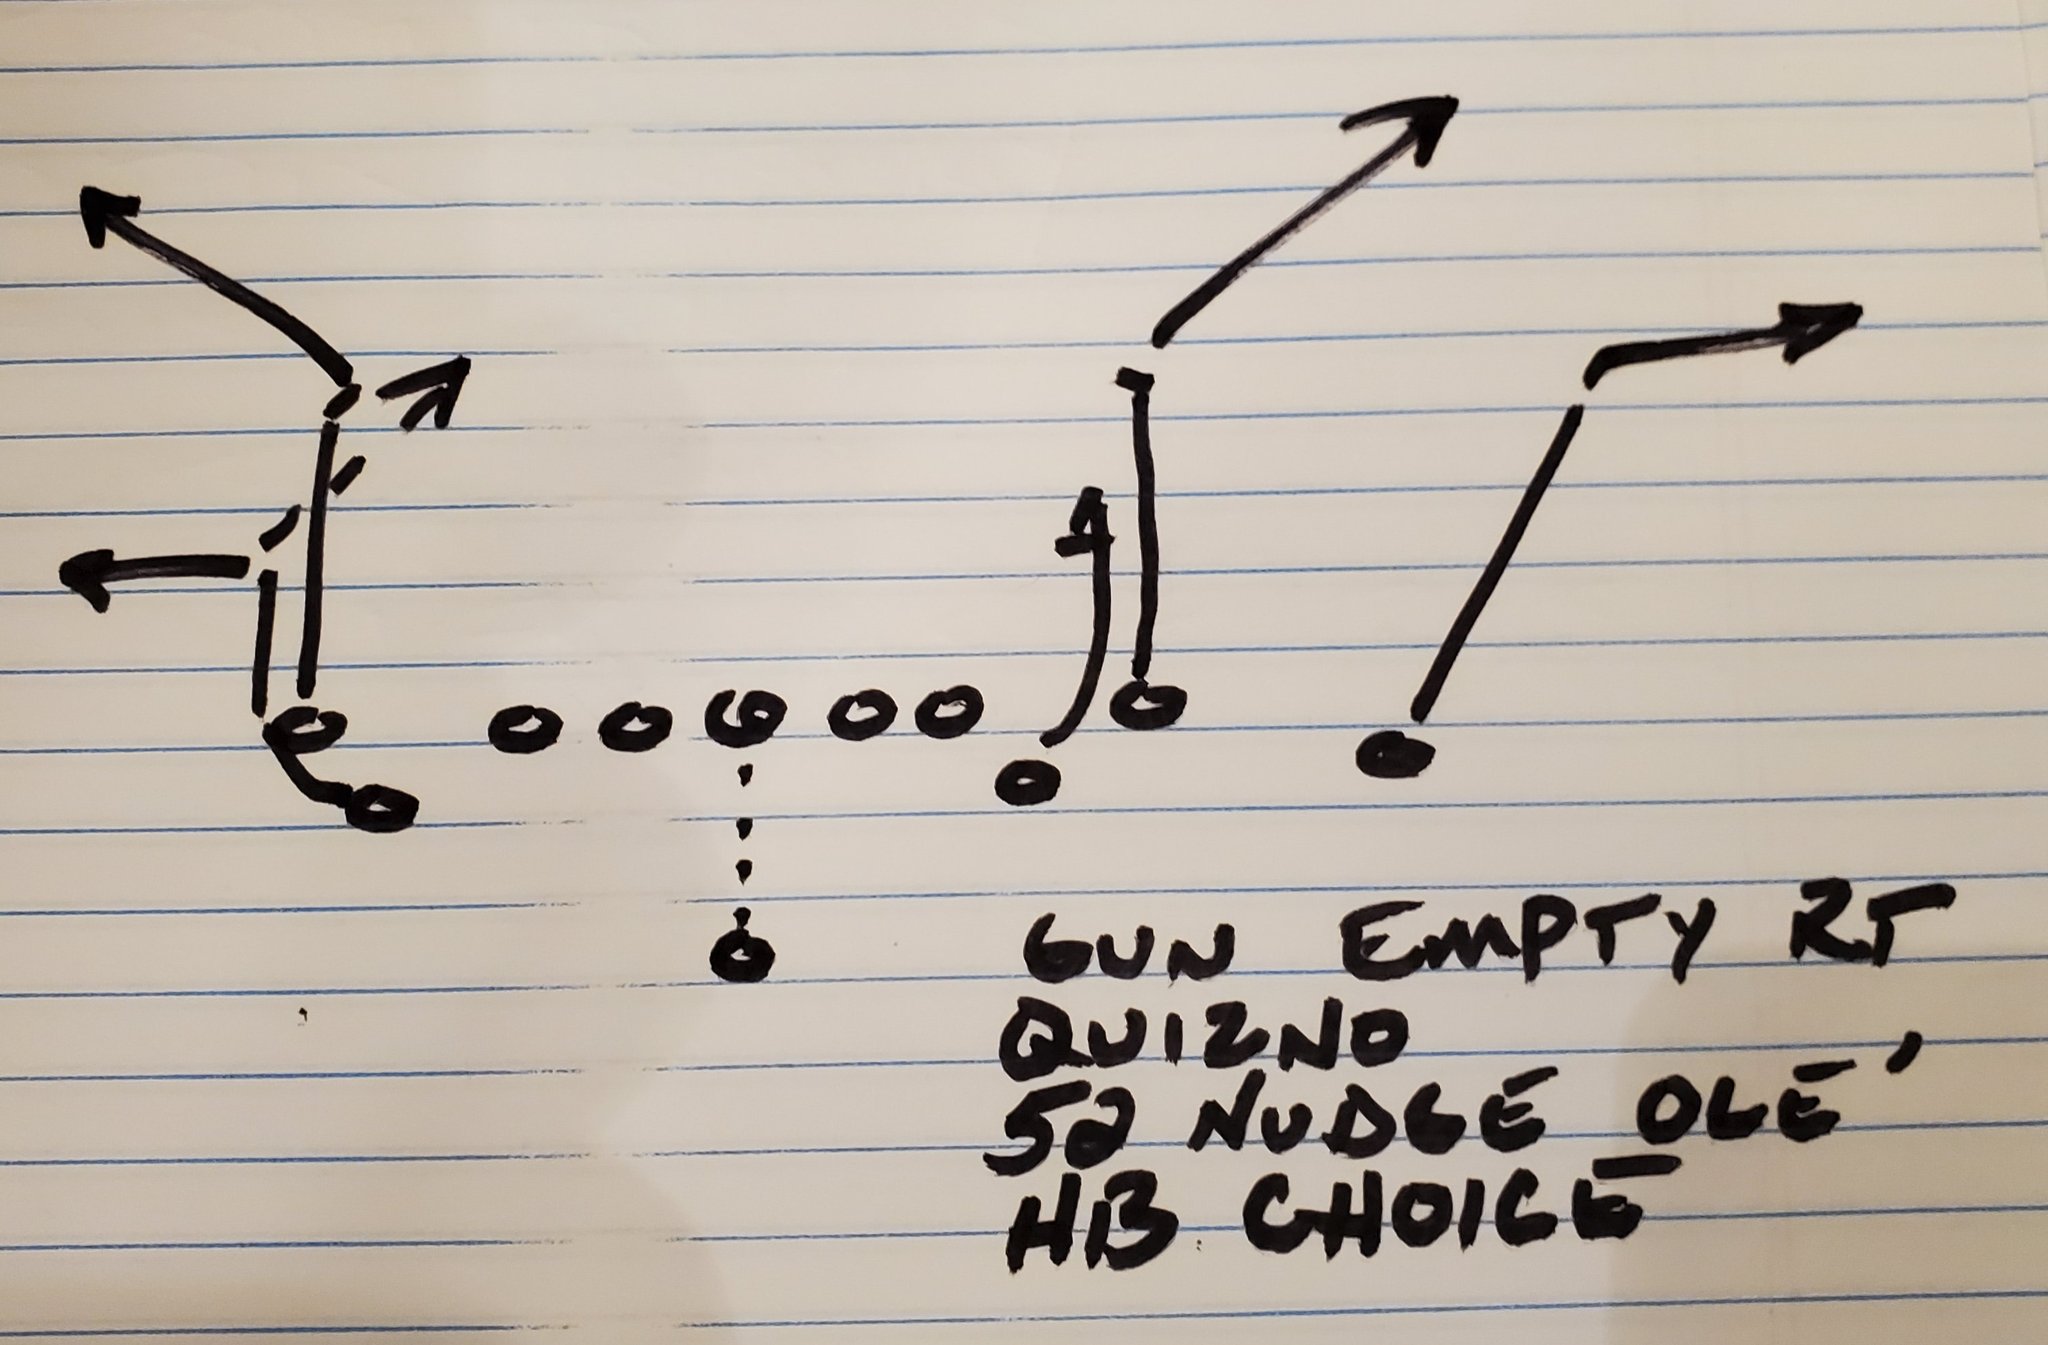 GUN EMPTY RT
QUIZNO
52 NUDGE OLE'
HB CHOICE